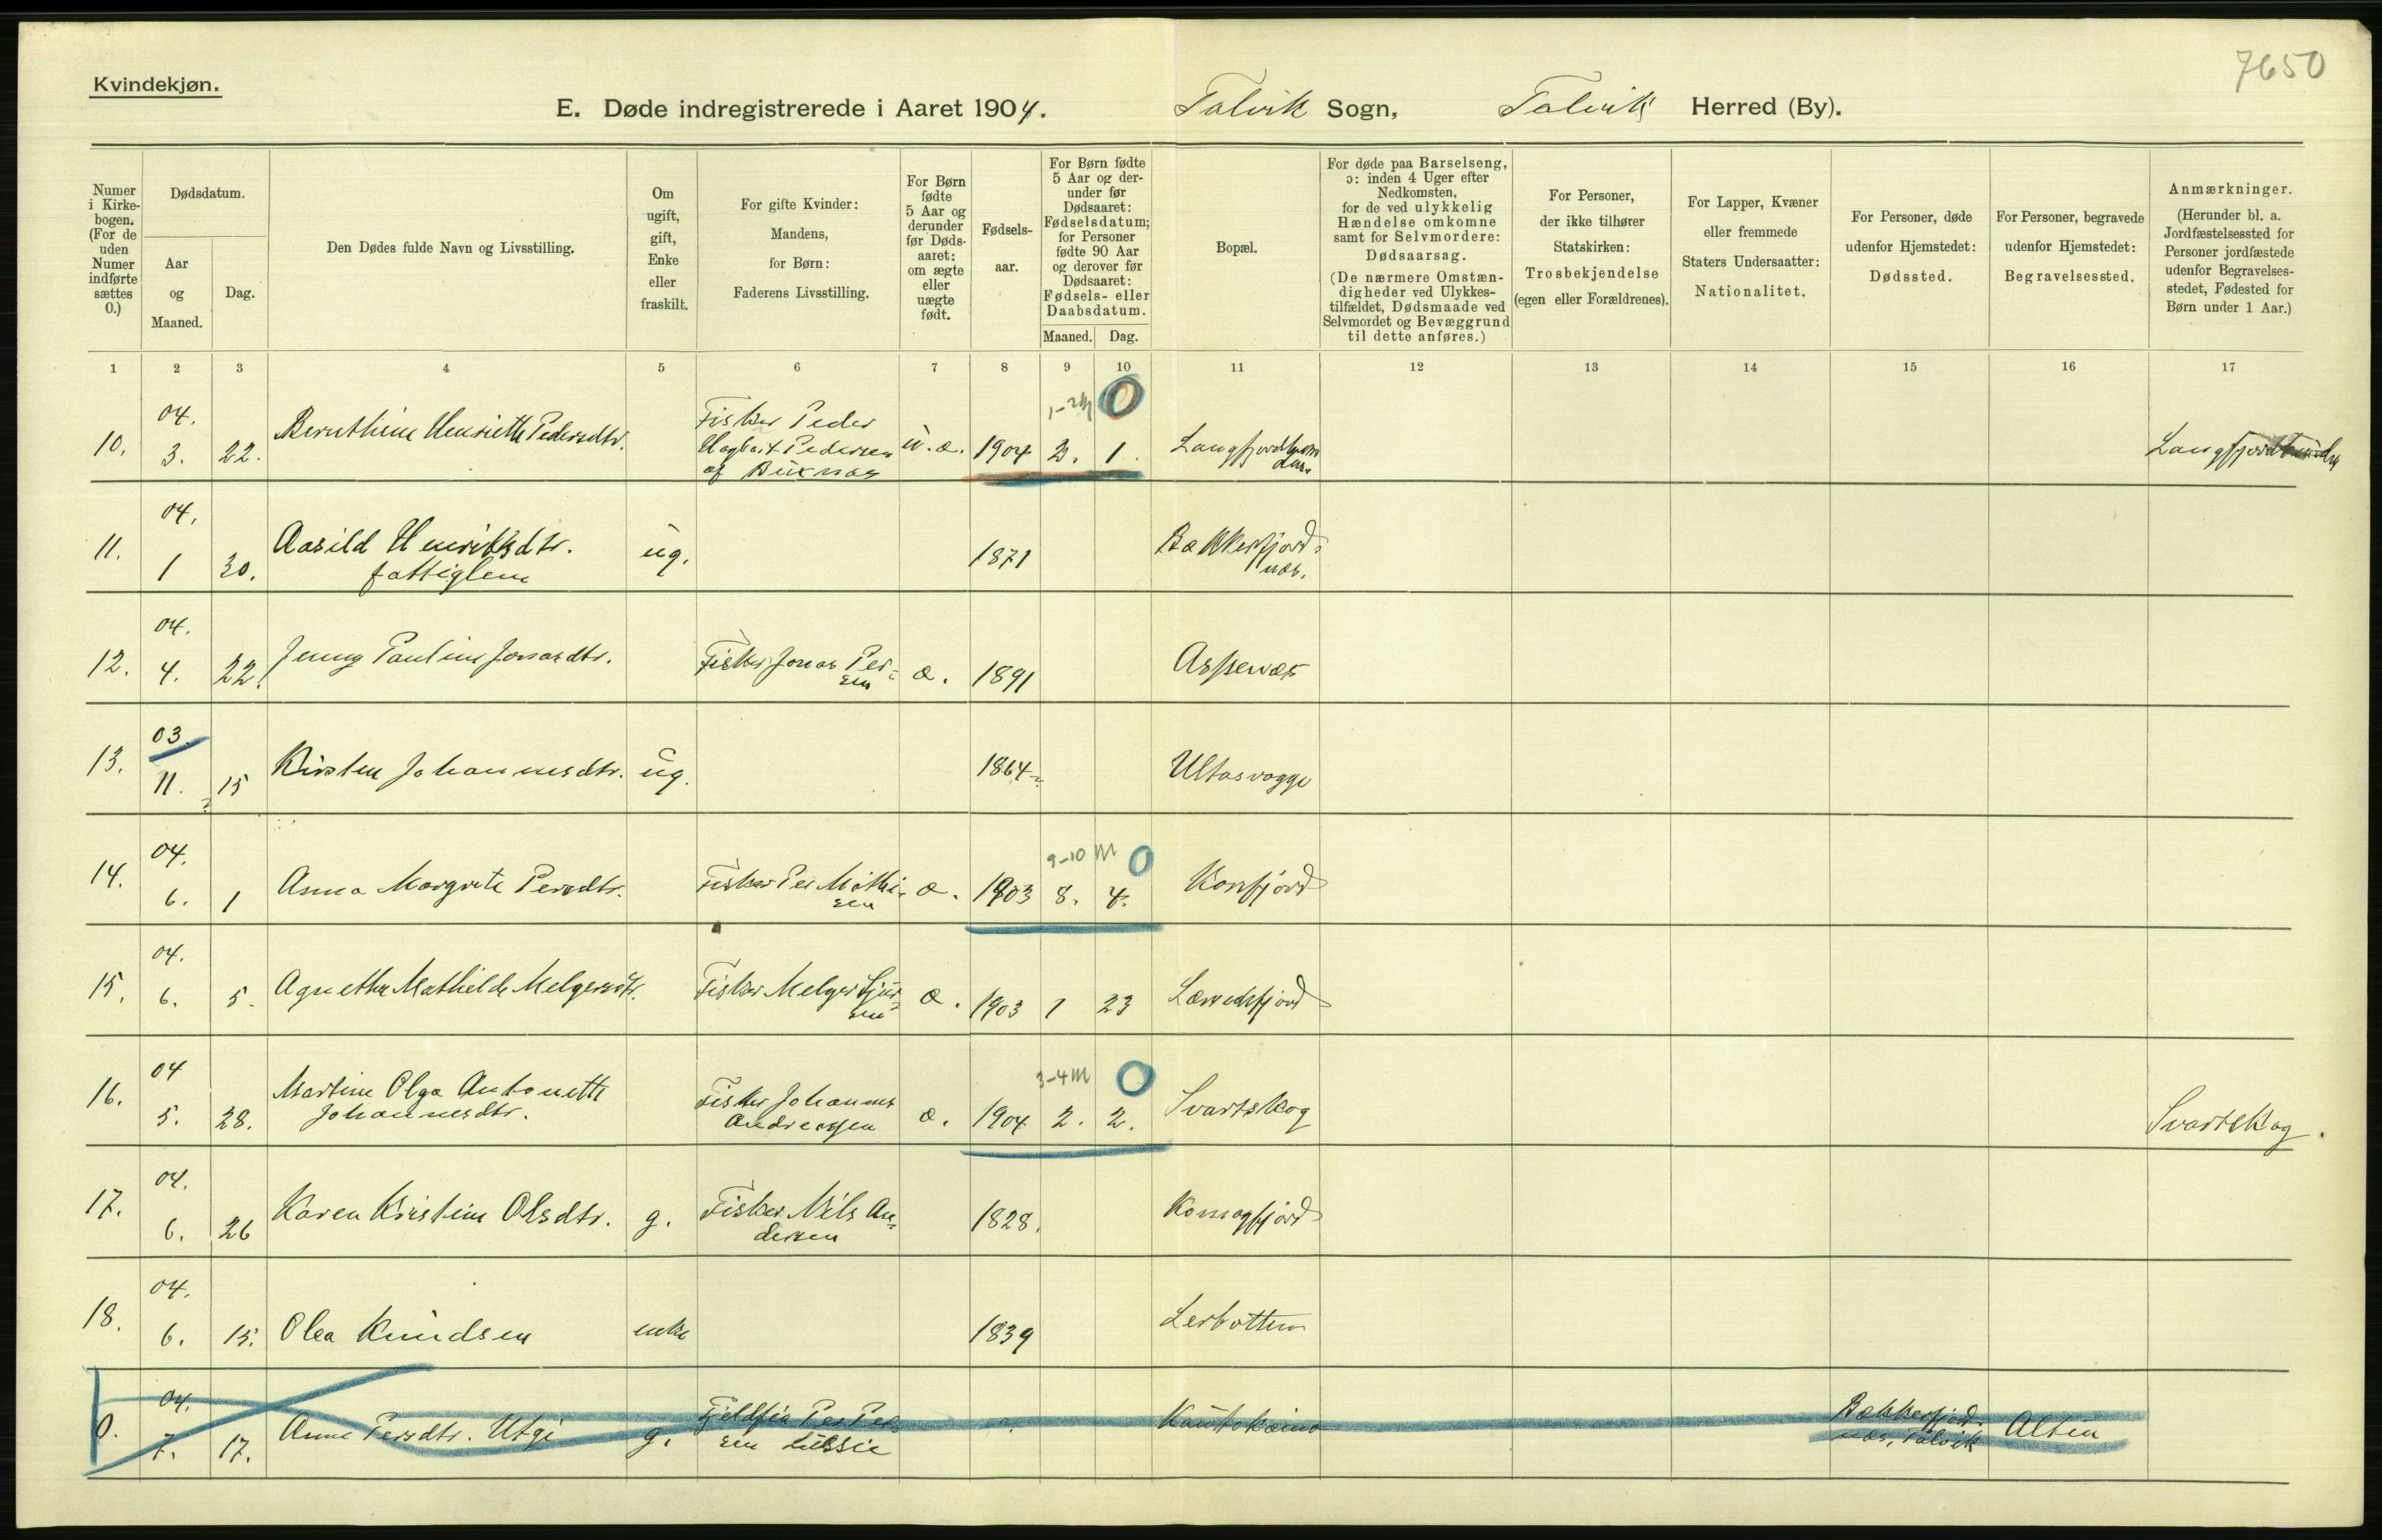 7650
Kvindekjøn.
E. Døde indregistrerede i Aaret 1904. Talvik Sogn, Talvik Herred (By).
Numer i Kirkebogen. (For de uden Numer indførte sættes 0.)
Dødsdatum.
Aar og Maaned.
Dag.
Den Dødes fulde Navn og Livsstilling.
Om ugift, gift, Enke eller fraskilt.
For gifte Kvinder: Mandens, for Børn: Faderens Livsstilling.
For Børn fødte 5 Aar og derunder før Dødsaaret: om ægte eller uægte født.
Fødselsaar.
For Børn fødte 5 Aar og derunder før Dødsaaret: Fødselsdatum; for Personer fødte 90 Aar og derover før Dødsaaret: Fødsels- eller Daabsdatum.
Maaned. Dag.
Bopæl.
For døde paa Barselseng, ɔ: inden 4 Uger efter Nedkomsten, for de ved ulykkelig Hændelse omkomne samt for Selvmordere: Dødsaarsag.
(De nærmere Omstændigheder ved Ulykkestilfældet, Dødsmaade ved Selvmordet og Bevæggrund til dette anføres.)
For Personer, der ikke tilhører Statskirken: Trosbekjendelse (egen eller Forældrenes).
For Lapper, Kvæner eller fremmede Staters Undersaatter: Nationalitet.
For Personer, døde udenfor Hjemstedet: Dødssted.
For Personer, begravede udenfor Hjemstedet: Begravelsessted.
Anmærkninger.
(Herunder bl. a. Jordfæstelsessted for Personer jordfæstede udenfor Begravelsesstedet, Fødested for Børn under 1 Aar.)
1 2 3 4 5 6 7 8 9 10 11 12 13 14 15 16 17
04. 1-2 M 0
10. 3. 22. Bernthine Henriette Pedersdtr. Fisker Peder
Hagbart Pedersen
af Buknæs u.æ. 1904 2. 1.
04.
11. 1 30. Aasild Henriksdtr.
fattiglem ug. 1871 Bakkerfjord-
næs.
04.
12. 4. 22. Jenny Pauline Jonasdtr. Fisker Jonas Per-
sen æ. 1891 Aspenæs
03.
13. 11. 15 Kirsten Johannesdtr. ug. 1864 Ultasvagge
04. 9-10 M 0
14. 6. 1 Anna Margrete Persdtr. Fisker Per Mathi-
sen æ. 1903 8. 4. Korsfjord
04.
15. 6. 5. Agnethe Mathilde Melgersdtr. Fisker Melger
æ. 1903 1 23
04 3-4 M 0
16. 5. 28. Martine Olga Antonette
Johannesdtr. Fisker Johannes
Andreassen æ. 1904 2. 2. Svartskog Svartskog.
04.
17. 6. 26 Karen Kristine Olsdtr. g. Fisker Nils An-
dersen 1828. Komagfjord
04.
18. 6. 15. Olea Knudsen enke 1839 Lerbotten
04.
0. 7. 17. Anne Persdtr. Utsi g. Fjeldfin Per Per-
sen Kautokeino Bakkerfjord-
næs, Talvik Alten